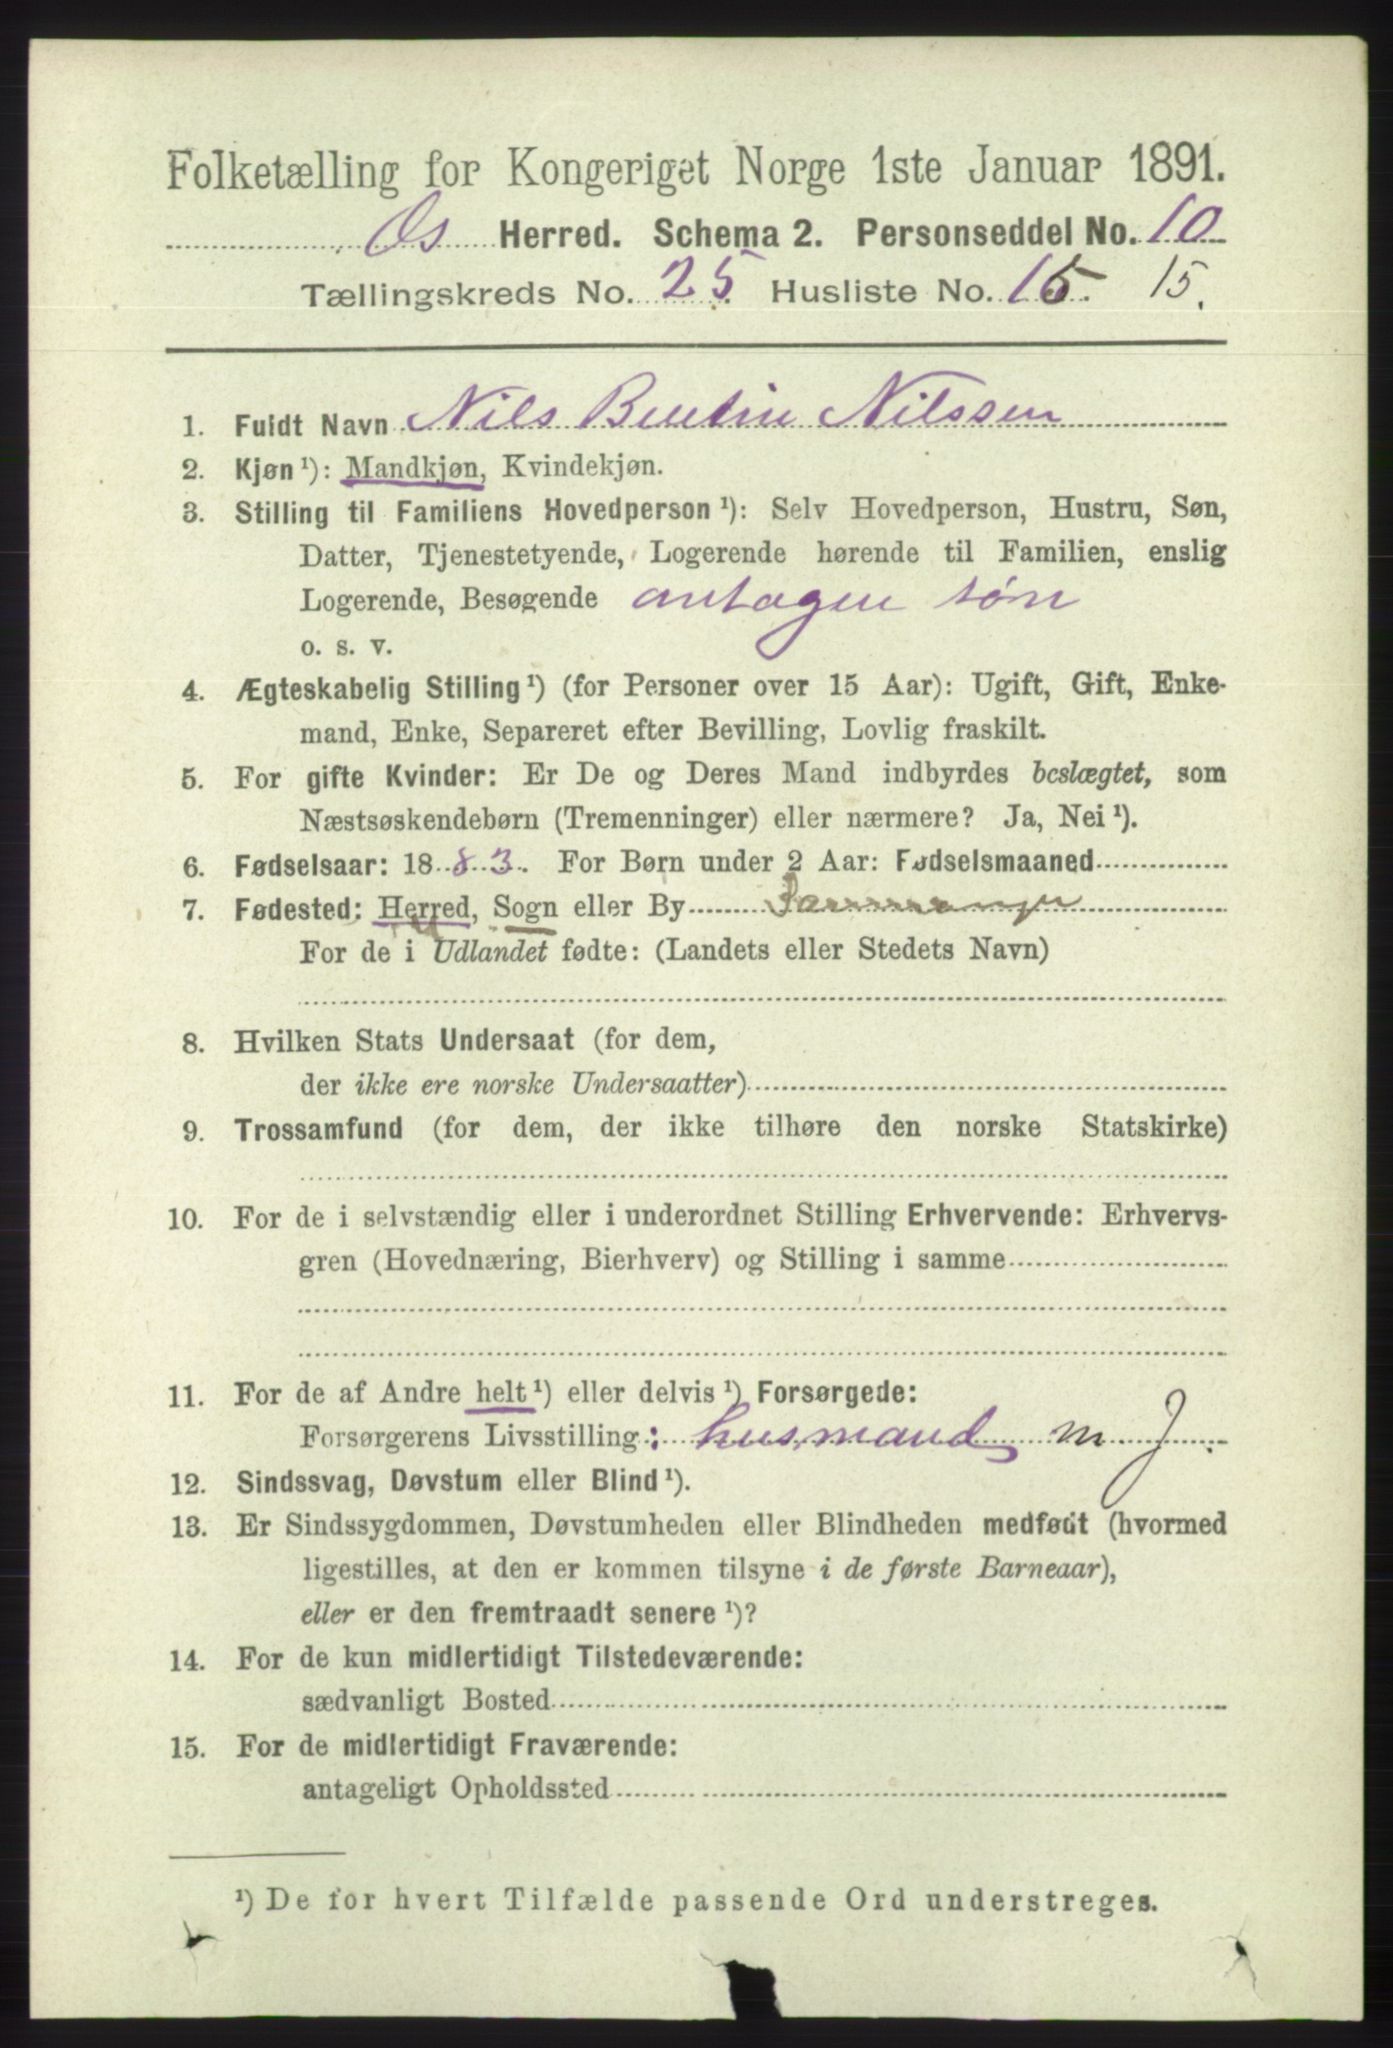 Folketælling for Kongeriget Norge 1ste Januar 1891.
Os Herred. Schema 2. Personseddel No. 10
Tællingskreds No. 25. Husliste No. 15. 15.
1. Fuldt Navn Nils Nilssen
2. Kjøn ¹): Mandkjøn, Kvindekjøn.
3. Stilling til Familiens Hovedperson ¹): Selv Hovedperson, Hustru, Søn,
Datter, Tjenestetyende, Logerende hørende til Familien, enslig
Logerende, Besøgende antagen søn
o. s. v.
4. Ægteskabelig Stilling ¹) (for Personer over 15 Aar): Ugift, Gift, Enke-
mand, Enke, Separeret efter Bevilling, Lovlig fraskilt.
5. For gifte Kvinder: Er De og Deres Mand indbyrdes beslægtet, som
Næstsøskendebørn (Tremenninger) eller nærmere? Ja, Nei ¹).
6. Fødselsaar: 1883. For Børn under 2 Aar: Fødselsmaaned
7. Fødested: Herred, Sogn eller By
For de i Udlandet fødte: (Landets eller Stedets Navn)
8. Hvilken Stats Undersaat (for dem,
der ikke ere norske Undersaatter)
9. Trossamfund (for dem, der ikke tilhøre den norske Statskirke)
10. For de i selvstændig eller i underordnet Stilling Erhvervende: Erhvervs-
gren (Hovednæring, Bierhverv) og Stilling i samme
11. For de af Andre helt ¹) eller delvis ¹) Forsørgede:
Forsørgerens Livsstilling: husmand m. J.
12. Sindssvag, Døvstum eller Blind ¹).
13. Er Sindssygdommen, Døvstumheden eller Blindheden medfødt (hvormed
ligestilles, at den er kommen tilsyne i de første Barneaar),
eller er den fremtraadt senere ¹)?
14. For de kun midlertidigt Tilstedeværende:
sædvanligt Bosted
15. For de midlertidigt Fraværende:
antageligt Opholdssted
¹) De for hvert Tilfælde passende Ord understreges.